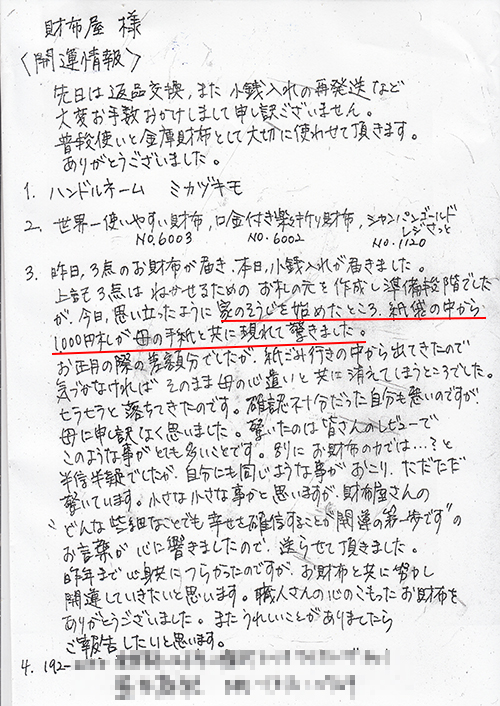 財布屋 様
〈開運情報〉
先日は返品交換,また小銭入れの再発送など
大変お手数おかけしまして申し訳ございません。
普段使いと金庫財布として大切に使わせて頂きます。
ありがとうございました。
1. ハンドルネーム ミカヅキモ
2. 世界一使いやすい財布,口金付き 財布,シャンパンゴールド
レジさっと
NO.6003 NO.6002 NO.1120
3. 昨日,3点のお財布が届き、本日,小銭入れが届きました。
上記3点は ねかせるための お札の元を作成し準備段階でした
が、今日,思い立ったように 家のそうじを始めたところ、紙袋の中から
1,000円札が 母の手紙と共に現れて驚きました。
お正月の際の差額分でしたが、紙ごみ行きの中から出てきたので
気づかなければ そのまま母の心遣いと共に消えてしまうところでした。
ヒラヒラと落ちてきたのです。確認不十分だった自分も悪いのですが
母に申し訳なく思いました。驚いたのは皆さんのレビューで
このような事がとても多いことです。別に お財布の力では…?と
半信半疑でしたが、自分にも同じような事がおこり、ただただ
驚いています。小さな小さな事かと思いますが、財布屋さんの
"どんな些細なことでも 幸せを確信することが開運の第一歩です"の
お言葉が 心に響きましたので、送らせて頂きました。
昨年まで心身共につらかったのですが、お財布と共に努力し
開運していきたいと思います。職人さんの心のこもったお財布を
ありがとうございました。またうれしいことがありましたら
ご報告したいと思います。
4. 192-